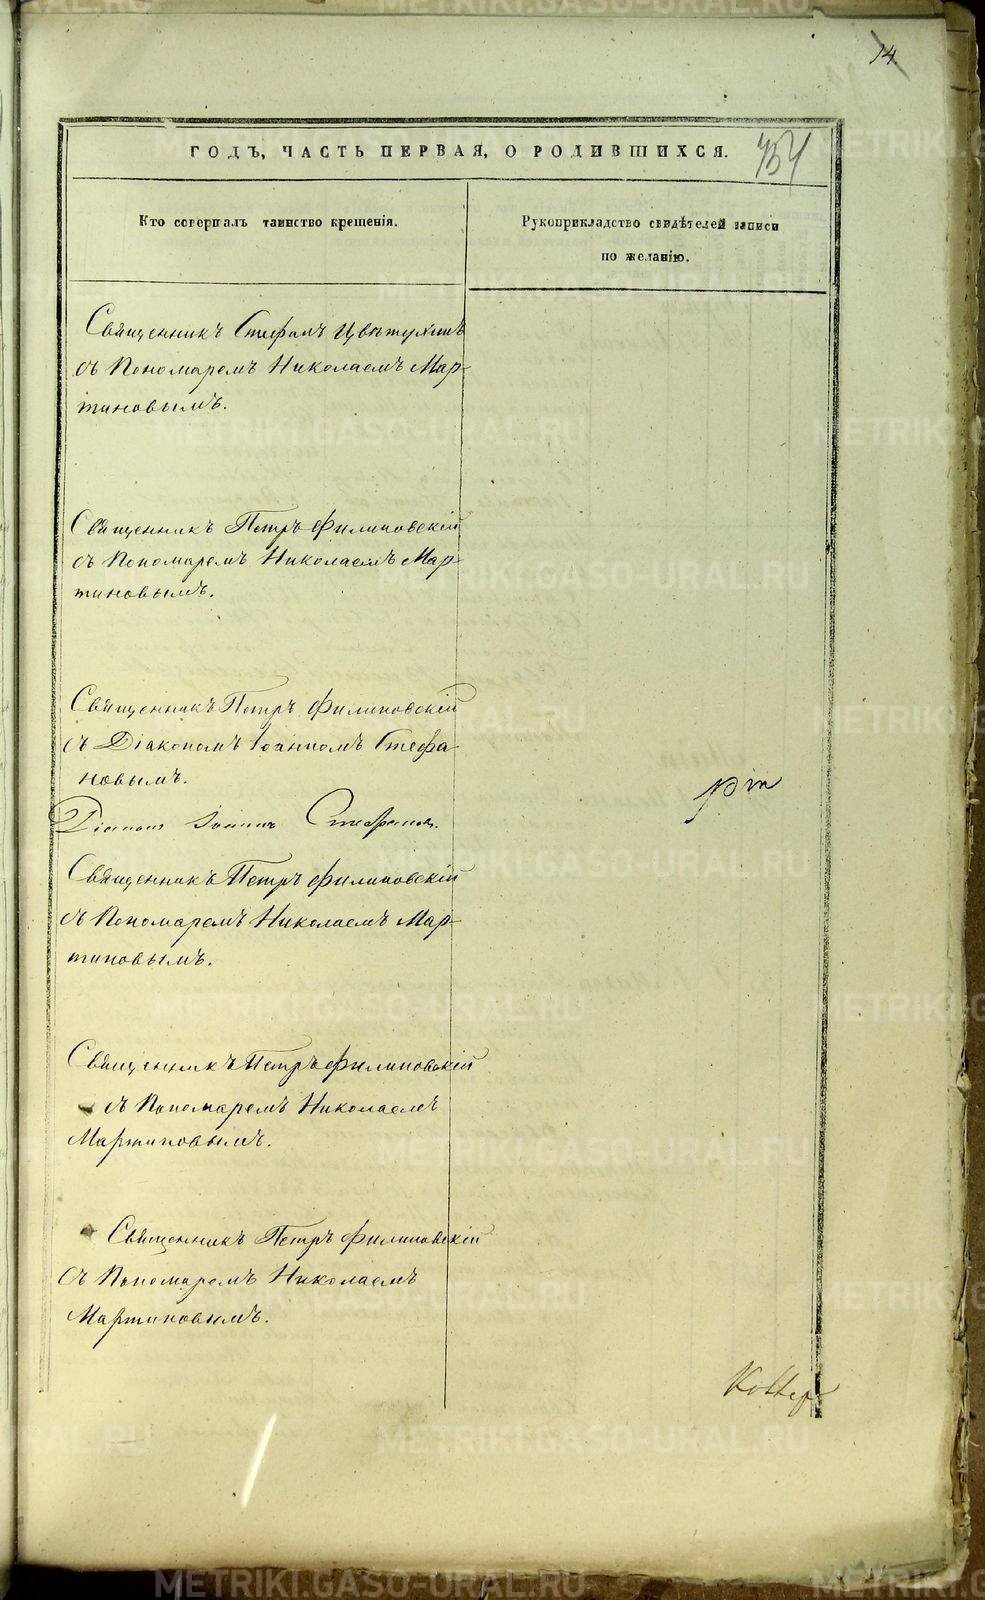 14.
ГОДЪ, ЧАСТЬ ПЕРВАЯ, О РОДИВШИХСЯ.
Кто совершалъ таинство крещенія.
Рукоприкладство свидѣтелей записи
по желанію.
Священникъ Стефанъ Цвѣтухинъ
съ Пономаремъ Николаемъ Мар-
тиновымъ.
Священникъ Петръ Филиповскій
съ Пономаремъ Николаемъ Мар-
тиновымъ.
Священникъ Петръ Филиповскій
съ Діакономъ Іоанномъ Стефа-
новымъ.
Діаконъ Іоаннъ Стефановъ.
Священникъ Петръ Филиповскій
съ Пономаремъ Николаемъ Мар-
тиновымъ.
Священникъ Петръ Филиповскій
съ Пономаремъ Николаемъ
Мартиновымъ.
Священникъ Петръ Филиповскій
съ Пономаремъ Николаемъ
Мартиновымъ.
METRIKI.GASO-URAL.RU